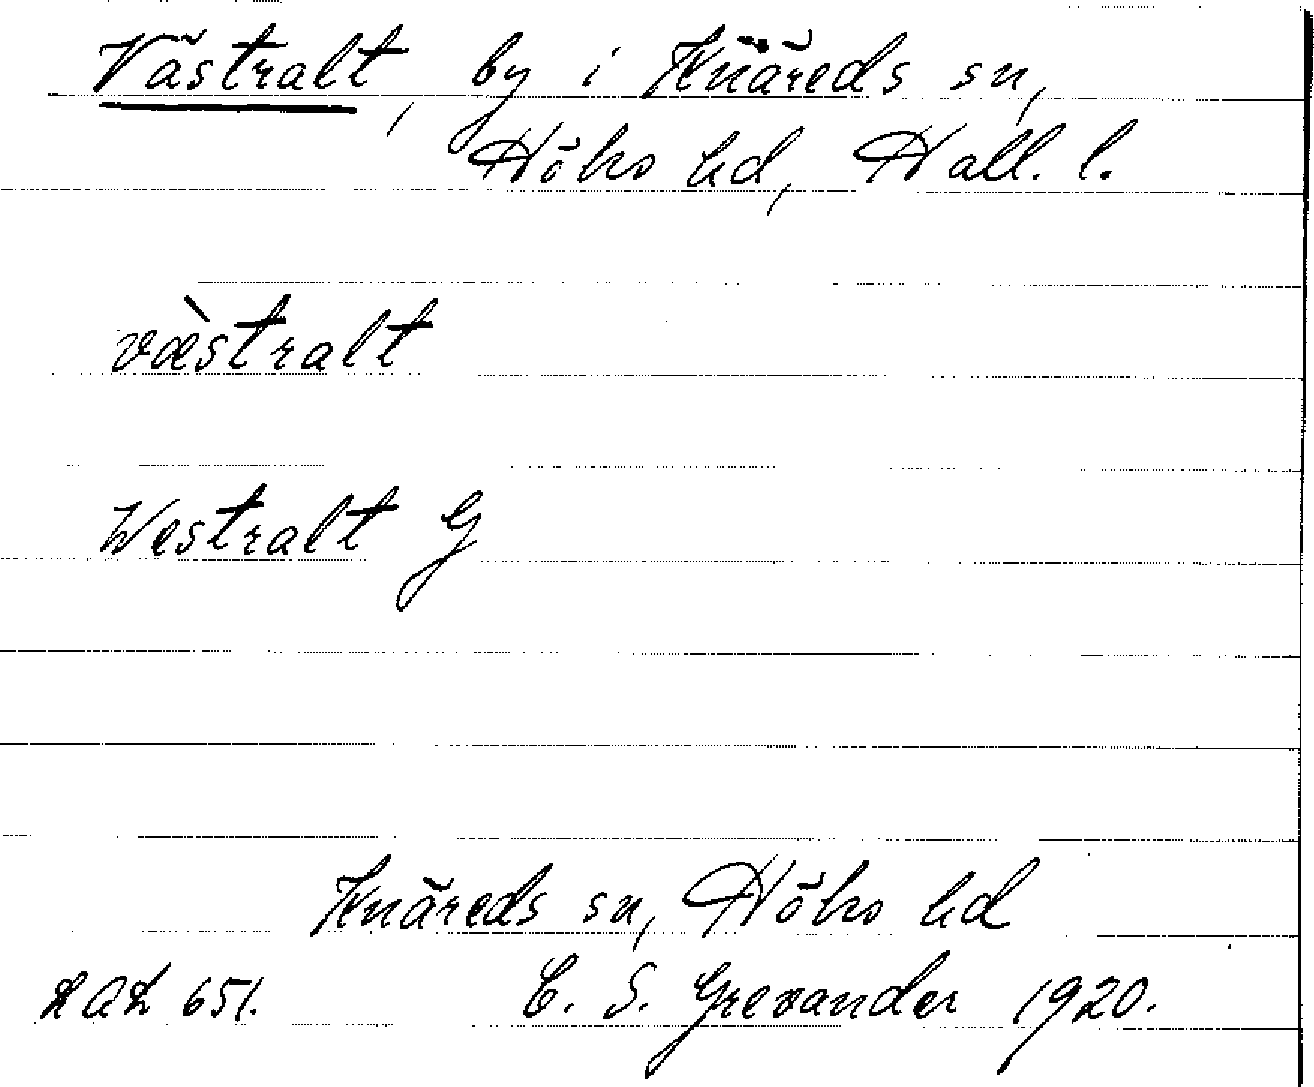 Västralt, by i Knäreds sn,
Höks hd, Hall. l.
væ̀stralt
Westralt G
Knäreds sn, Höks hd
DAL 651. C. S. Grevander 1920.